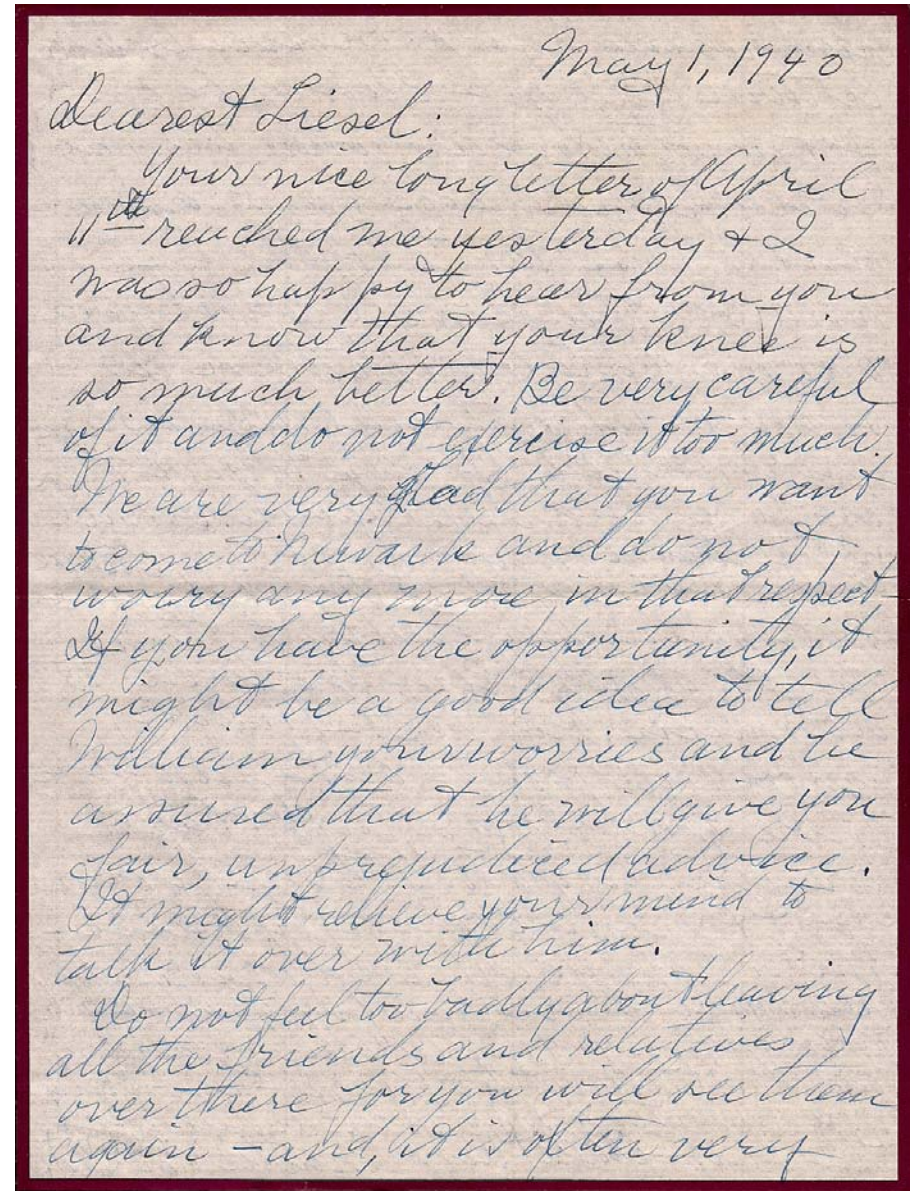 May 1, 1940
Dearest Liesel:
Your nice long letter of April
11th reached me yesterday + I
was so happy to hear from you
and know that your knee is
so much better. Be very careful
of it and do not exercise it too much.
We are very glad that you want
to come to Newark and do not
worry any more in that respect.
If you have the opportunity, it
might be a good idea to tell
William your worries and be
assured that he will give you
fair, unprejudiced advice.
It might relieve your mind to
talk it over with him.
Do not feel too badly about leaving
all the friends and relatives
over there for you will see them
again - and, it is often very